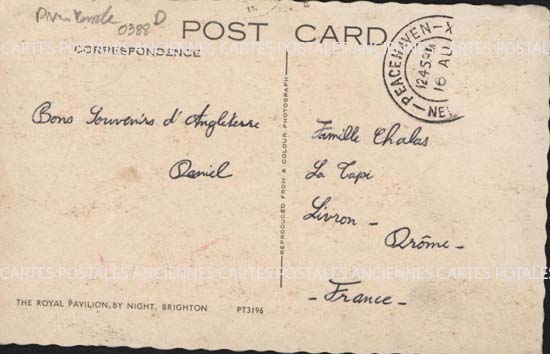 0388 D
POST CARD
CORRESPONDENCE
PEACEHAVEN
12 45 PM
16 AU
NE
Bons Souvenirs d'Angleterre
Daniel
REPRODUCED FROM A COLOUR PHOTOGRAPH
Famille Chalas
La Tapi
Livron -
Drôme -
- France -
CARTES POSTALES ANCIENNES CARTES POSTALES ANCIENNES CARTES POSTALES
THE ROYAL PAVILION, BY NIGHT, BRIGHTON
PT3196